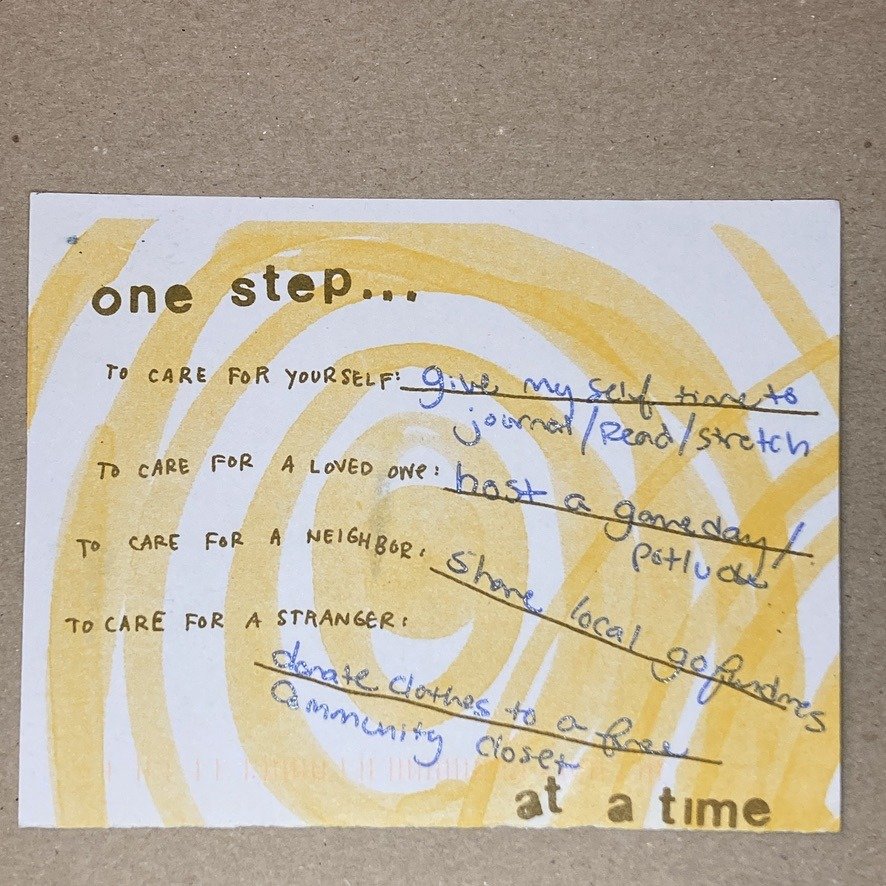 one step...
TO CARE FOR YOURSELF: give my self time to
journal/Read/stretch
TO CARE FOR A LOVED ONE: host a game day/
potluck
TO CARE FOR A NEIGHBOR: share local gofundmes
TO CARE FOR A STRANGER:
donate clothes to a free
Community closet
at a time